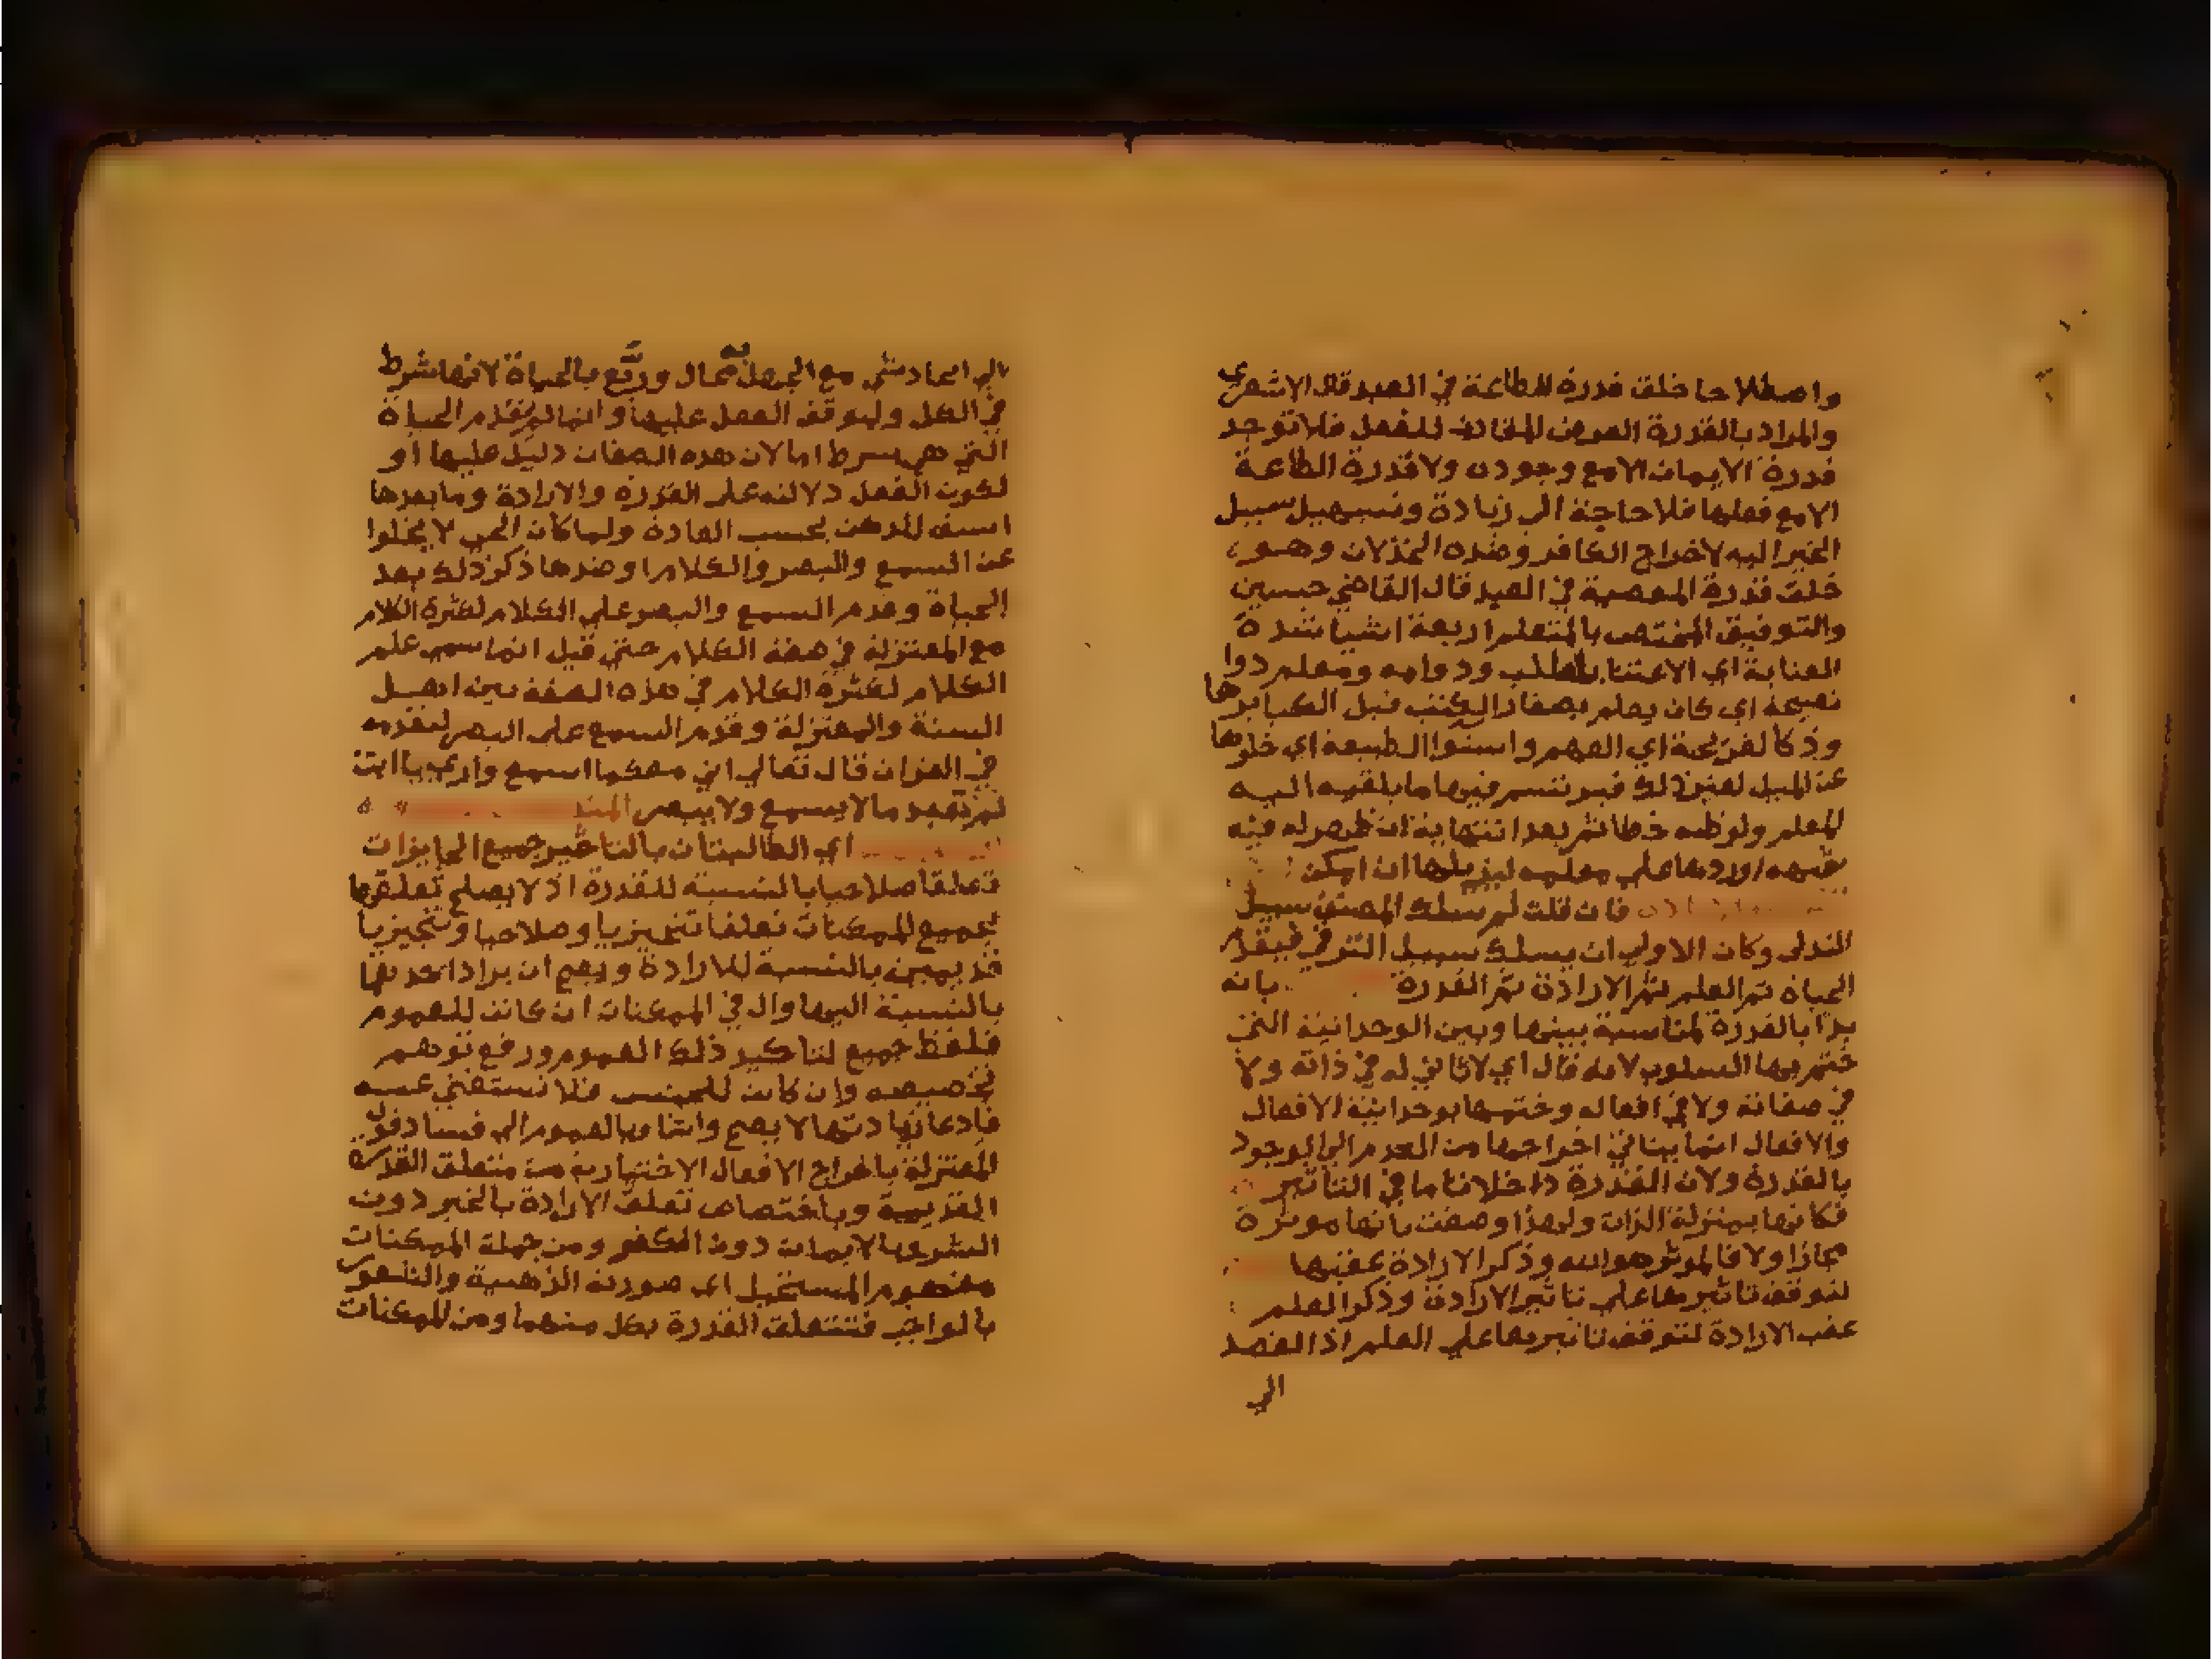 واصطلاحا خلق قدرة للطاعة في العبد قال الاشعري
والمراد بالقدرة العرض المقارن للفعل فلا توجد
قدرة الايمان الا مع وجوده ولا قدرة الطاعة
الا مع فعلها فلا حاجة الى زيادة وتسهيل سبيل
الخير اليه لاخراج الكافر وضده الخذلان وهو
خلق قدرة المعصية في العبد قال القاضي حسين
والتوفيق المختص بالمتعلم اربعة اشيا شدة
العناية اي الاعتنا بالطلب ودوامه ومعلم دوا
نصيحة اي كان يعلم بصغار الكتب قبل الكبا برها
وذكا لقريحة اي الفهم واستوا الطبيعة اي خلوها
عن الميل لغير ذلك فيرتسم فيها ما يلقيه اليه
المعلم ولو ظنه خطا ثم بعد انتهايه ان ظهر له فيه
شبهة اوردها على معلمه ليزيلها ان امكن
فان قلت لم سلك المصنف سبيل
التدلى وكان الاولى ان يسلك سبيل الترقي فيقدم
الحياة ثم العلم ثم الارادة ثم القدرة بانه
بدا بالقدرة لمناسبة بينها وبين الوحدانية التي
ختم بها السلوب لانه قال اي لا ثاني له في ذاته ولا
في صفاته ولا في افعاله وختمها بوحدانية الافعال
والافعال انما يتاتي اخراجها من العدم الى الوجود
بالقدرة ولان القدرة دخلا تاما في التاثير
فكانها بمنزلة الذات ولهذا وصفت بانها موثرة
مجازا ولا فالموثر هو الله وذكر الارادة عقبها
لتوقف تاثيرها على تاثير الارادة وذكر العلم
عقب الارادة لتوقف تاثيرها على العلم اذ القصد
الي
الي ايجاد شي مع الجهل به محال وربع بالحياة لانها شرط
في الكل ولتوقف الفعل عليها وانما لم يقدم الحياة
التي هي شرط اما لان هذه الصفات دليل عليها او
لكون الفعل دلالته على القدرة والارادة وما بعدها
اسبق للذهن بحسب العادة ولما كان الحي لا يخلوا
عن السمع والبصر والكلام او ضدها ذكر ذلك بعد
الحياة وقدم السمع والبصر على الكلام لكثرة الكلام
مع المعتزلة في صفة الكلام حتي قيل انما سمي علم
الكلام لكثرة الكلام في هذه الصفة بين اهل
السنة والمعتزلة وقدم السمع على البصر لتقدمه
في القران قال تعالي انني معكما اسمع واري يا ابت
لم تعبد ما لا يسمع ولا يبصر
اي الطالبتان بالتاخير جميع الجايزات
تعلقا صلاحيا بالنسبة للقدرة اذ لا يصلح تعلقها
بجميع الممكنات تعلقا تنجيزيا وصلاحيا وتنجيزيا
قديمين بالنسبة للارادة ويصح ان يراد احدهما
بالنسبة اليها وال في الممكنات ان كانت للعموم
فلفظ جميع لتاكيد ذلك العموم ورفع توهم
تخصيصه وان كانت للجنس فلا نستغني عنه
فادعا زيادتها لا يصح واشار بالعموم الى فساد قول
المعتزلة باخراج الافعال الاختيارية من متعلق القدرة
القديمة وباختصاص تعلق الارادة بالخير دون
الشر وبالايمان دون الكفر ومن جملة الممكنات
مفهوم المستحيل اي صورته الذهنية والتصور
بالواجب فتتعلق القدرة بكل منهما ومن الممكنات